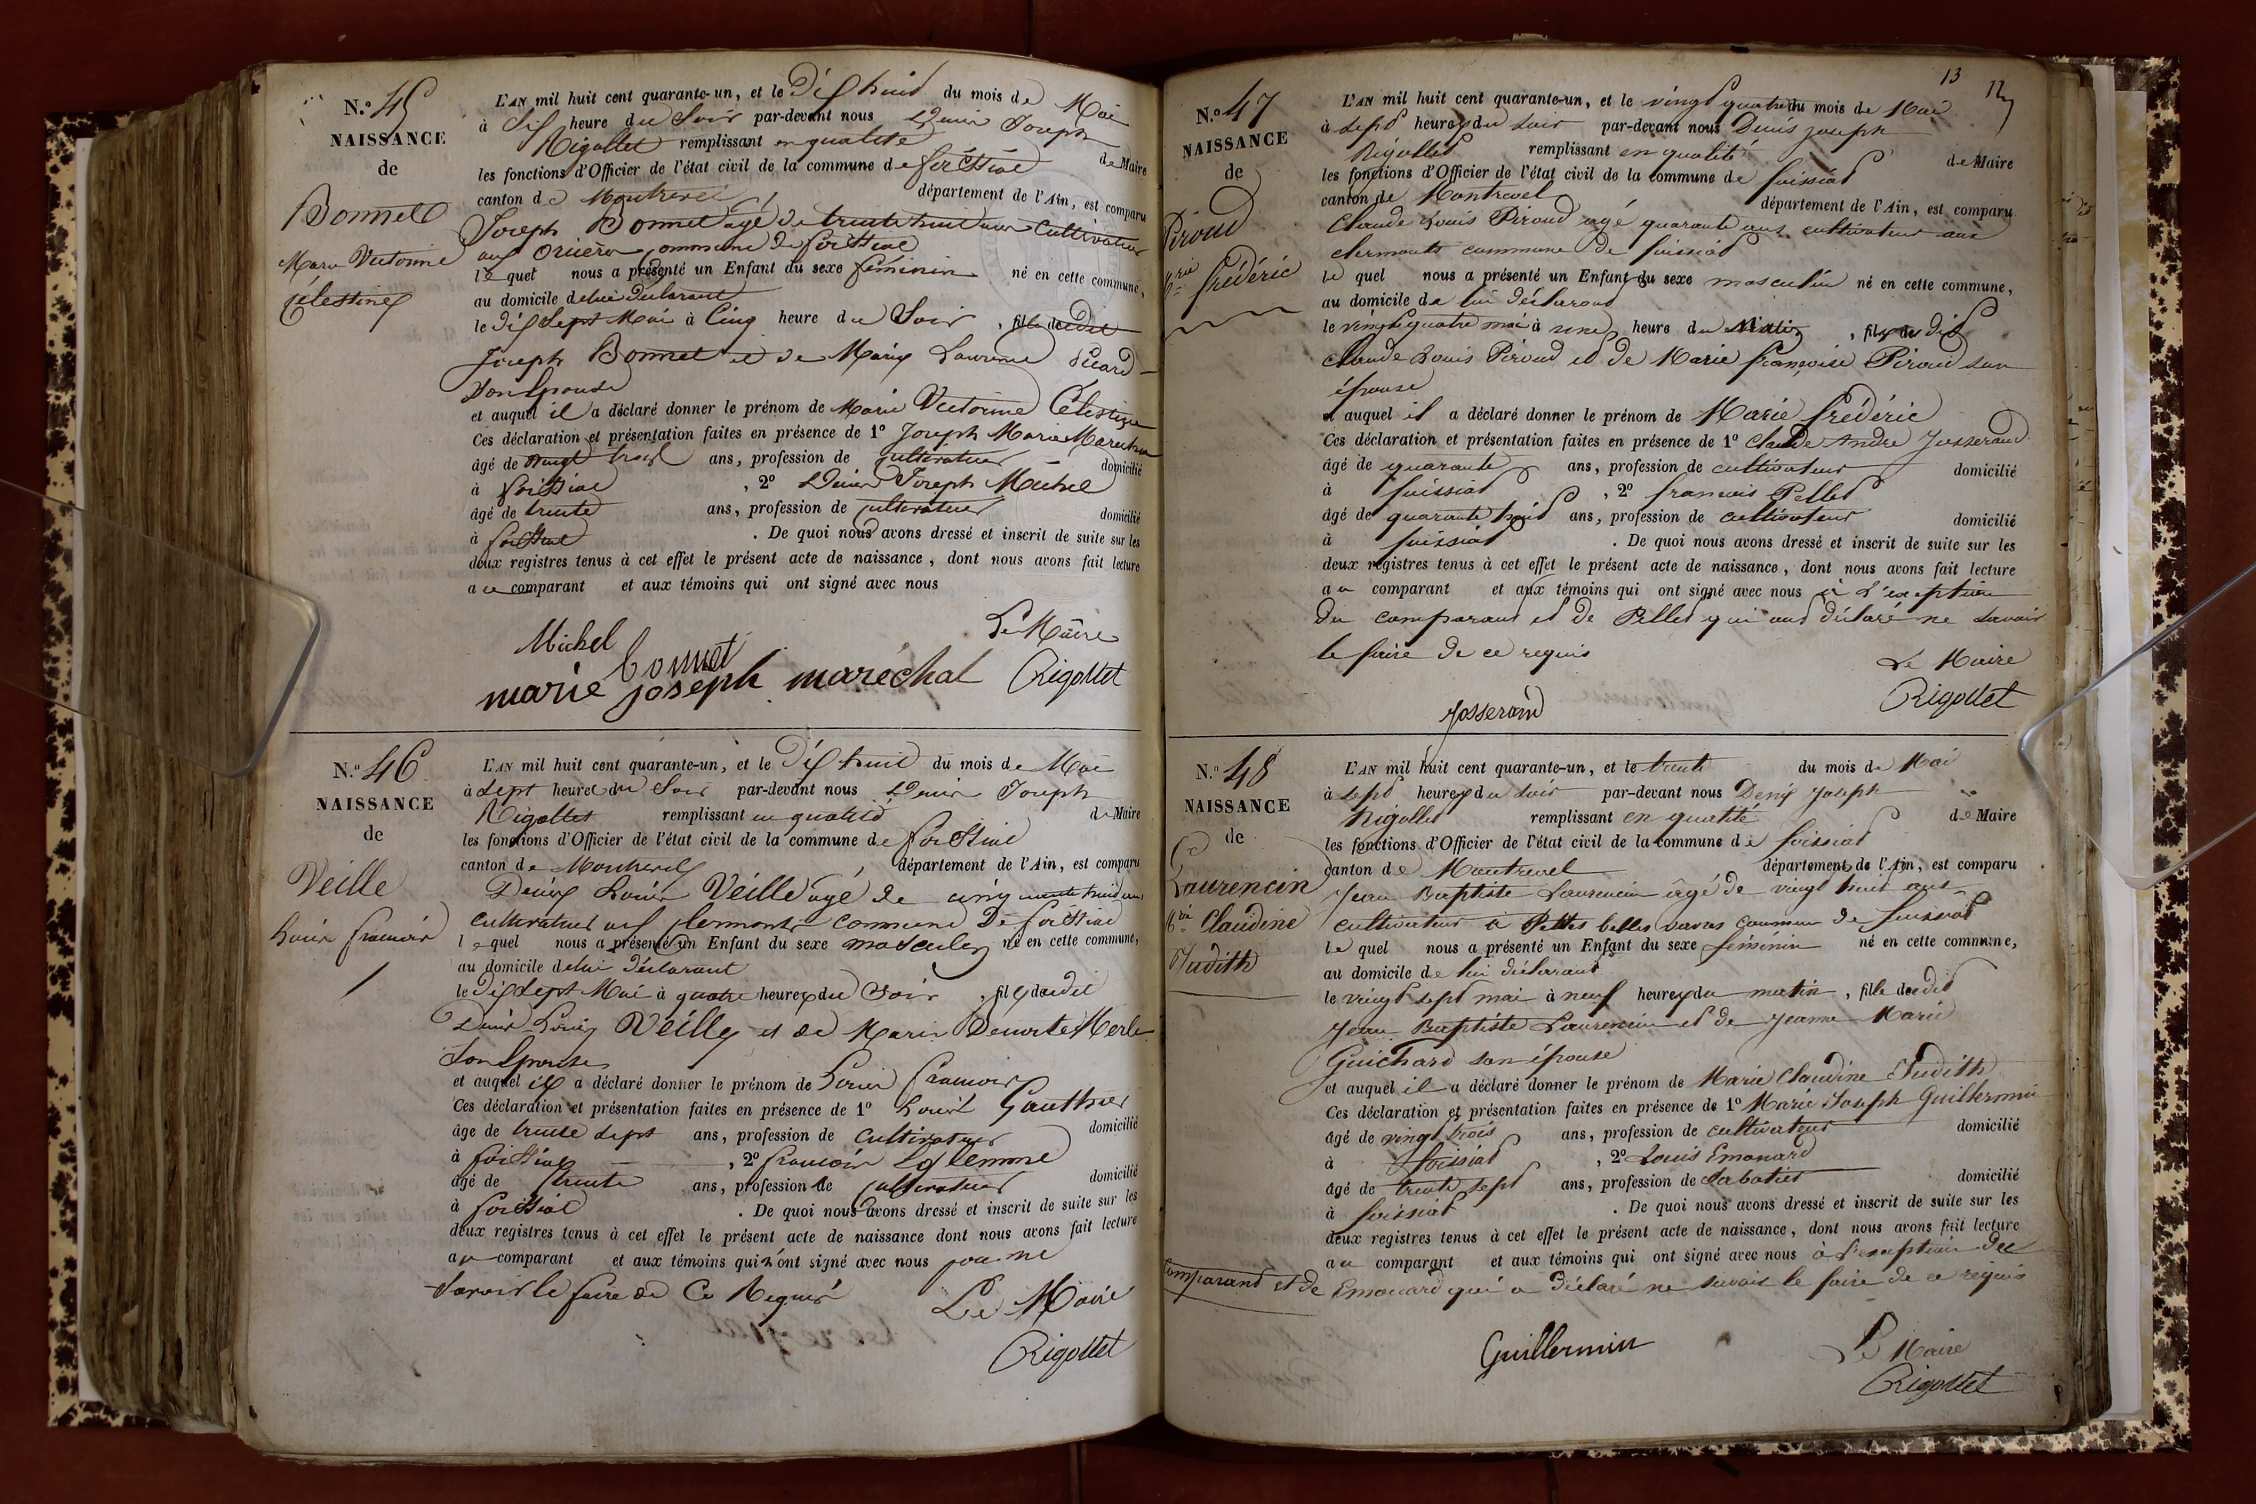 N.º 45
NAISSANCE
de
Bonnet
Marie Victorine
Célestine
L'AN mil huit cent quarante-un, et le Dix huit du mois de Mai
à Six heure du Soir par-devant nous Denis Joseph
Rigollet remplissant en qualité de Maire
les fonctions d'Officier de l'état civil de la commune de foissiat
canton de Montrevel département de l'Ain, est comparu
Joseph Bonnet agé de trente huit ans Cultivateur
aux commune de foissiat
le quel nous a présenté un Enfant du sexe féminin né en cette commune,
au domicile de lui déclarant
le dix Sept Mai à Cinq heure du Soir, fille dudit
Joseph Bonnet et de Marie Laurence Picard
Son Epouse
et auquel il a déclaré donner le prénom de Marie Victorine Célestine
Ces déclaration et présentation faites en présence de 1º Joseph Marie Marechal
âgé de vingt trois ans, profession de cultivateur domicilié
à foissiat, 2º Denis Joseph Michel
âgé de trente ans, profession de cultivateur domicilié
à foissiat. De quoi nous avons dressé et inscrit de suite sur les
deux registres tenus à cet effet le présent acte de naissance, dont nous avons fait lecture
au comparant et aux témoins qui ont signé avec nous
Michel
bonnet
Le Maire
marie joseph maréchal
Rigollet
N.º 46
NAISSANCE
de
Veille
Louis francois
L'AN mil huit cent quarante-un, et le Dix huit du mois de Mai
à sept heures du Soir par-devant nous Denis Joseph
Rigollet remplissant en qualité de Maire
les fonctions d'Officier de l'état civil de la commune de foissiat
canton de Montrevel département de l'Ain, est comparu
Denis Louis Veille agé de cinquante huit ans
cultivateur aux clermonts commune De foissiat
le quel nous a présenté un Enfant du sexe masculin né en cette commune,
au domicile de lui déclarant
le dix sept Mai à quatre heures du Soir, fils dudit
Denis Louis Veille et de Marie Merle
Son Epouse
et auquel il a déclaré donner le prénom de Louis francois
Ces déclaration et présentation faites en présence de 1º Louis Gauthier
âge de trente sept ans, profession de Cultivateur domicilié
à foissiat, 2º francois
âgé de trente ans, profession de cultivateur domicilié
à foissiat. De quoi nous avons dressé et inscrit de suite sur les
deux registres tenus à cet effet le présent acte de naissance dont nous avons fait lecture
au comparant et aux témoins qui n'ont signé avec nous pour ne
Savoir le faire de Ce Requis
Le Maire
Rigollet
13
N.º 47
NAISSANCE
de
Piroud
Mrie frédéric
L'AN mil huit cent quarante-un, et le vingt quatre du mois de Mai
à sept heures du soir par-devant nous Denis joseph
Rigollet remplissant en qualité de Maire
les fonctions d'Officier de l'état civil de la commune de foissiat
canton de Montrevel département de l'Ain, est comparu
Claude Louis Piroud agé quarante ans cultivateur aux
clermonts commune de foissiat
le quel nous a présenté un Enfant du sexe masculin né en cette commune,
au domicile de lui déclarant
le vingt quatre mai à une heure du Matin, fils du dit
Claude Louis Piroud et de Marie françoise Piroud son
épouse
et auquel il a déclaré donner le prénom de Marie frédéric
Ces déclaration et présentation faites en présence de 1º Claude Andre Josserand
âgé de quarante ans, profession de cultivateur domicilié
à foissiat, 2º francois Pellet
âgé de quarante trois ans, profession de cultivateur domicilié
à foissiat. De quoi nous avons dressé et inscrit de suite sur les
deux registres tenus à cet effet le présent acte de naissance, dont nous avons fait lecture
au comparant et aux témoins qui ont signé avec nous à l'exception
du comparant et de Pellet qui ont déclaré ne savoir
le faire de ce requis
Le Maire
Rigollet
Josserand
N.º 48
NAISSANCE
de
Laurencin
Mrie Claudine
Judith
L'AN mil huit cent quarante-un, et le trente du mois de Mai
à sept heures du soir par-devant nous Denis joseph
Rigollet remplissant en qualité de Maire
les fonctions d'Officier de l'état civil de la commune de foissiat
canton de Montrevel département de l'Ain, est comparu
Jean Baptiste Laurencin âgé de vingt huit ans
cultivateur à belles commune de foissiat
le quel nous a présenté un Enfant du sexe féminin né en cette commune,
au domicile de lui déclarant
le vingt sept mai à neuf heures du matin, fille du dit
Jean Baptiste Laurencin et de Jeanne Marie
Guichard son épouse
et auquel il a déclaré donner le prénom de Marie Claudine Judith
Ces déclaration et présentation faites en présence de 1º Marie Joseph Guillermin
âgé de vingt trois ans, profession de cultivateur domicilié
à foissiat, 2º Louis Emonard
âgé de trente sept ans, profession de Sabotier domicilié
à foissiat. De quoi nous avons dressé et inscrit de suite sur les
deux registres tenus à cet effet le présent acte de naissance, dont nous avons fait lecture
au comparant et aux témoins qui ont signé avec nous à l'exception du
comparant et de Emonard qui a déclaré ne savoir le faire de ce requis
Guillermin
Le Maire
Rigollet